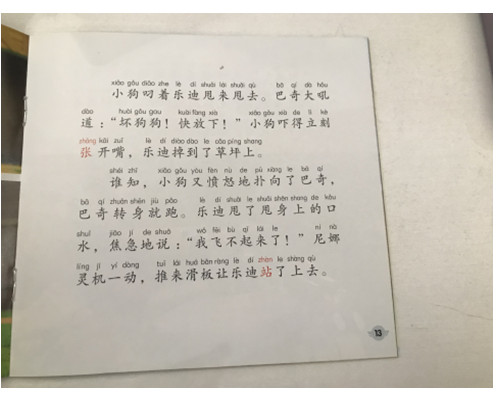 xiǎo gǒu diāo zhe lè dí shuǎi lái shuǎi qù bā qí dà hǒu
小狗叼着乐迪甩来甩去。巴奇大吼
dào huài gǒu gou kuài fàng xià xiǎo gǒu xià de lì kè
道：“坏狗狗！快放下！”小狗吓得立刻
zhāng kāi zuǐ lè dí diào dào le cǎo píng shang
张开嘴，乐迪掉到了草坪上。
shéi zhī xiǎo gǒu yòu fèn nù de pū xiàng le bā qí
谁知，小狗又愤怒地扑向了巴奇，
bā qí zhuǎn shēn jiù pǎo lè dí shuǎi le shuǎi shēn shang de kǒu
巴奇转身就跑。乐迪甩了甩身上的口
shuǐ jiāo jí de shuō wǒ fēi bù qǐ lái le ní nà
水，焦急地说：“我飞不起来了！”尼娜
líng jī yí dòng tuī lái huá bǎn ràng lè dí zhàn le shàng qù
灵机一动，推来滑板让乐迪站了上去。
13